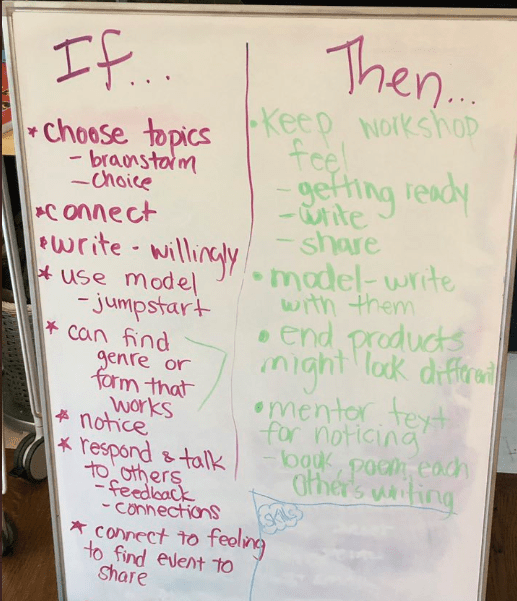 If...
* choose topics
- brainstorm
- choice
* connect
* write - willingly
* use model
- jumpstart
* can find
genre or
form that
works
* notice
* respond & talk
to others
- feedback
- connections
* connect to feeling
to find event to
share
Then...
• Keep workshop
feel
- getting ready
- write
- share
• model - write
with them
• end products
might look different
• mentor text
for noticing
- book, poem, each
others writing
SKILLS